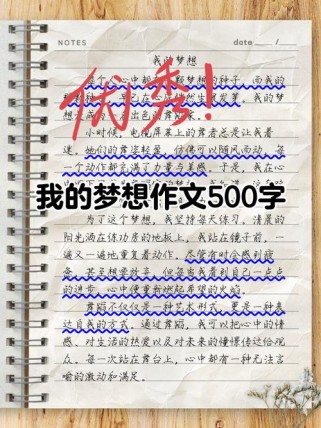 NOTES
date
我的梦想
优秀!
小时候，电视屏幕上的舞者总是让我着
迷。她们的舞姿轻盈，仿佛可以随风而动，每
一个动作都充满了力量与美感。于是，我在心
我的梦想作文500字
为了这个梦想，我坚持每天练习。清晨的
阳光洒在练功房的地板上，我站在镜子前，一
遍又一遍地重复着动作。尽管有时会感到疲
惫，甚至想要放弃，但每当我看到自己一点点
的进步，心中便重新燃起希望的火焰。
舞蹈不仅仅是一种艺术形式，更是一种表
达自我的方式。通过舞蹈，我可以把心中的情
感、对生活的热爱以及对未来的憧憬传达给观
众。每一次站在舞台上，心中都有一种无法言
喻的激动和满足。